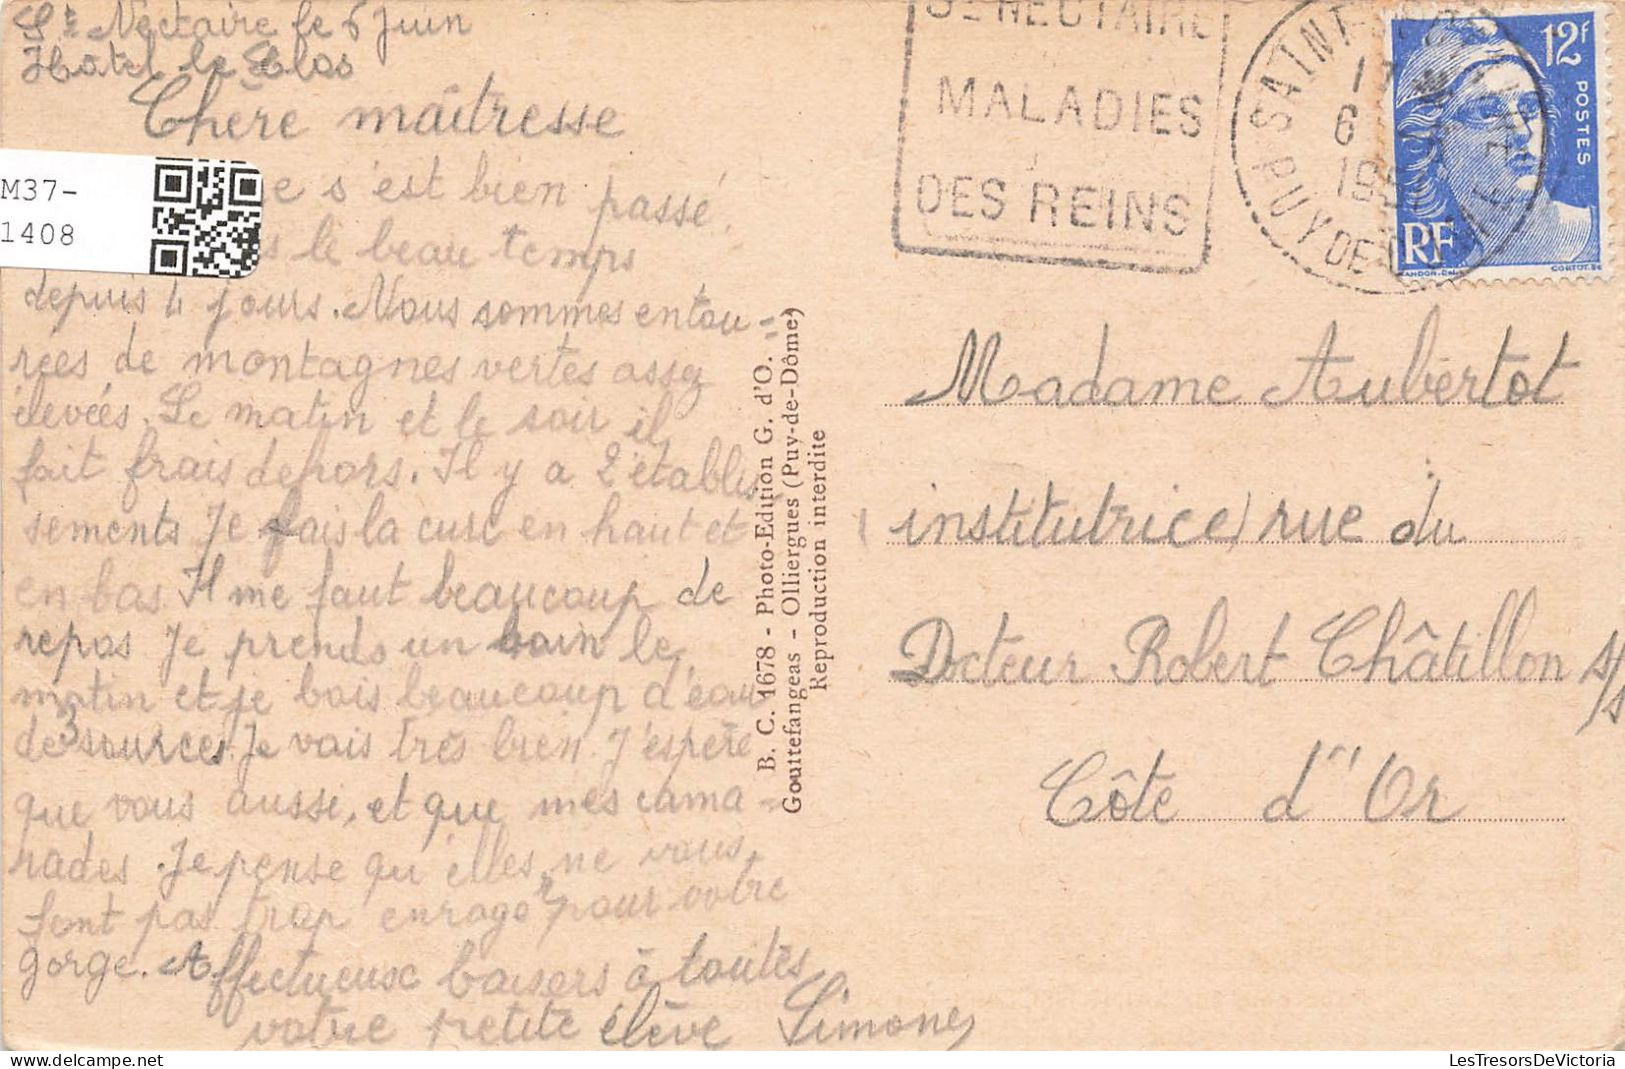 St Nectaire le 6 Juin
Hôtel le Clos
Chère maîtresse
s'est bien passé.
le beau temps
depuis 4 jours. Nous sommes entou=
rées de montagnes vertes assez
élevées. Le matin et le soir il
fait frais dehors. Il y a 2 établis
sements Je fais la cure en haut et
en bas Il me faut beaucoup de
repos Je prends un bain le
matin et je bois beaucoup d'eau
de 3 sources. Je vais très bien. J'espère
que vous aussi, et que mes cama=
rades. Je pense qu'elles ne vous
font pas trop enrager pour votre
gorge. Affectueux baisers à toutes
votre petite élève Simone
M37-
1408
B. C. 1678 - Photo-Edition G. d'O.
Gouttefangeas - Olliergues (Puy-de-Dôme)
Reproduction interdite
St NECTAIRE
MALADIES
DES REINS
SAINT
PUY DE DOME
17
6
195
12f
POSTES
RF
GANDON-Del.
CORTOT.Sc
Madame Aubertot
(institutrice) rue du
Docteur Robert Châtillon s/s
Côte d'Or
LesTresorsDeVictoria.com